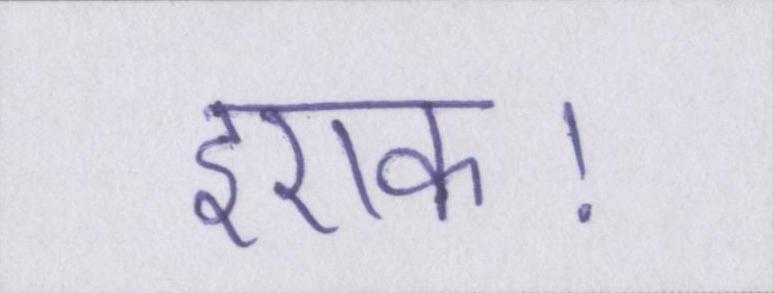 इराक!